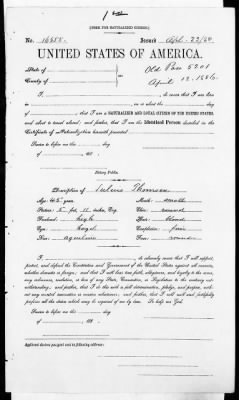 [FORM FOR NATURALIZED CITIZEN.]
No. Issued April 22/60
UNITED STATES OF AMERICA.
State of
County of
Old Pass 5201
April 12, 1860.
I, , do swear that I was born
in on or about the day
of , that I am a NATURALIZED AND LOYAL CITIZEN OF THE UNITED STATES,
and about to travel abroad; and further, that I am the Identical Person described in the
Certificate of Naturalization herewith presented
Sworn to before me, this day
of 186
Notary Public.
Description of Thomson
Age: years Mouth: small
Stature: 5 feet 11 inches, Eng. Chin: round
Forehead: high Hair:
Eyes: Hazel Complexion: fair
Nose: aquiline Face: round
I, , do solemnly swear that I will support,
protect, and defend the Constitution and Government of the United States against all enemies,
whether domestic or foreign; and that I will bear true faith, allegiance, and loyalty to the same,
any ordinance, resolution, or law of any State, Convention, or Legislature to the contrary not-
withstanding; and further, that I do this with a full determination, pledge, and purpose, with-
out any mental reservation or evasion whatsoever; and further, that I will well and faithfully
perform all the duties which may be required of me by law. So help me God.
Sworn to before me, this day
of 186
Applicant desires passport sent to following address: